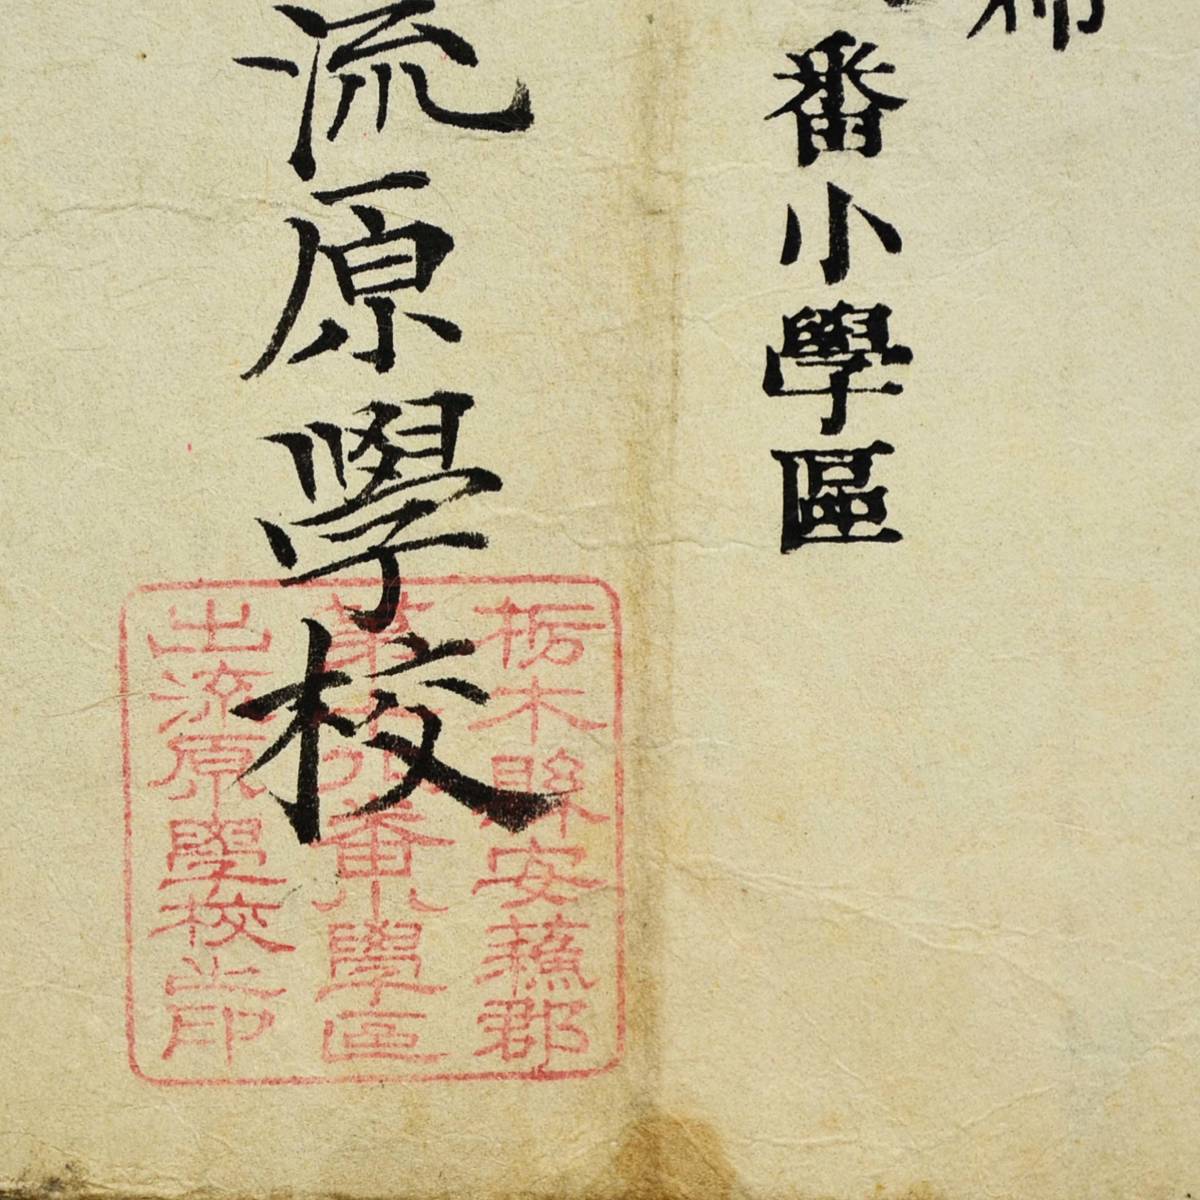 番小學區
流原學校
栃木縣安蘇郡
第
番小學區
出流原學校之印